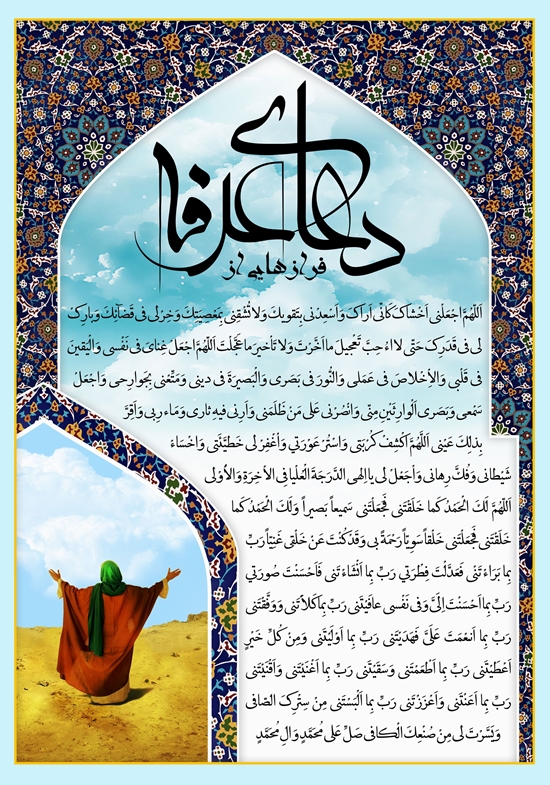 دعای عرفه
فرازهایی از
اَللّهُمَّ اجْعَلْنى اَخْشاكَ كَاَنّى اَراكَ وَاَسْعِدْنى بِتَقويكَ وَلا تُشْقِنى بِمَعْصِيَتِكَ وَخِرْلى فى قَضآئِكَ وَبارِكْ
لى فى قَدَرِكَ حَتّى لا اُحِبَّ تَعْجيلَ ما اَخَّرْتَ وَلا تَاْخيرَ ما عَجَّلْتَ اَللّهُمَّ اجْعَلْ غِناىَ فى نَفْسى وَالْيَقينَ
فى قَلْبى وَالاِْخْلاصَ فى عَمَلى وَالنُّورَ فى بَصَرى وَالْبَصيرَةَ فى دينى وَمَتِّعْنى بِجَوارِحى وَاجْعَلْ
سَمْعى وَبَصَرى اَلْوارِثَيْنِ مِنّى وَانْصُرْنى عَلى مَنْ ظَلَمَنى وَاَرِنى فيهِ ثارى وَمَاءرِبى وَاَقِرَّ
بِذلِكَ عَيْنى اَللَّهُمَّ اكْشِفْ كُرْبَتى وَاسْتُرْ عَوْرَتي وَاْغْفِرْ لى خَطيَّئَتى وَاخْسَاءْ
شَيْطانى وَفُكَّ رِهانى وَاجْعَلْ لى يا اِلهى الدَّرَجَةَ الْعُلْيا فِى الاْخِرَةِ وَالاُْولى
اَللّهُمَّ لَكَ الْحَمْدُ كَما خَلَقْتَنى فَجَعَلْتَنى سَميعاً بَصيراً وَلَكَ الْحَمْدُ كَما
خَلَقْتَنى فَجَعَلْتَنى خَلْقاً سَوِيّاً رَحْمَةً بى وَقَدْ كُنْتَ عَنْ خَلْقى غَنِيّاً رَبِّ
بِما بَرَاءْتَنى فَعَدَّلْتَ فِطْرَتي رَبِّ بِما اَنْشَاءْتَنى فَاَحْسَنْتَ صُورَتي
رَبِّ بِما اَحْسَنْتَ اِلَىَّ وَفى نَفْسى عافَيْتَنى رَبِّ بِما كَلاَْتَنى وَوَفَّقْتَنى
رَبِّ بِما اَنعَمْتَ عَلَىَّ فَهَدَيْتَنى رَبِّ بِما اَوْلَيْتَنى وَمِنْ كُلِّ خَيْرٍ
اَعْطَيْتَنى رَبِّ بِما اَطْعَمْتَنى وَسَقَيْتَنى رَبِّ بِما اَغْنَيْتَنى وَاَقْنَيْتَنى
رَبِّ بِما اَعَنْتَنى وَاَعْزَزْتَنى رَبِّ بِما اَلْبَسْتَنى مِنْ سِتْرِكَ الصّافى
وَيَسَّرْتَ لى مِنْ صُنْعِكَ الْكافى صَلِّ عَلى مُحَمَّدٍ وَالِ مُحَمَّدٍ